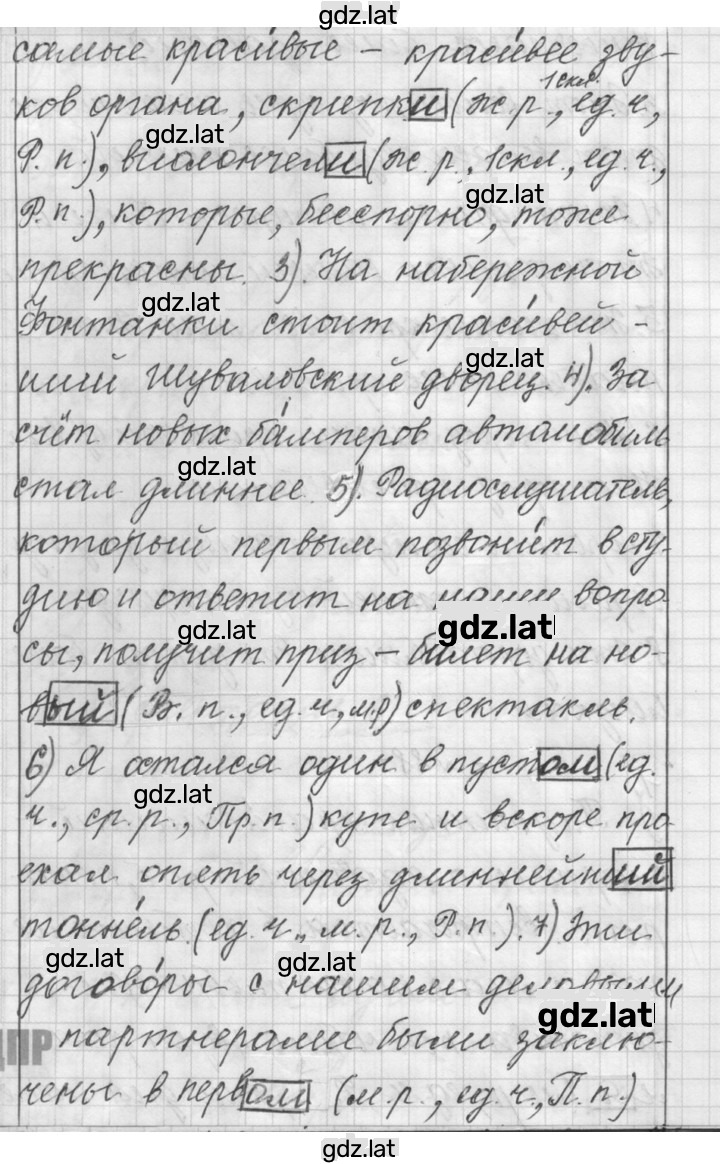 gdz.lat
самые краси́вые – краси́вее зву-
ков органа, скрипки (ж.р., 1 скл., ед.ч.,
gdz.lat
Р.п.), виолончели (ж.р., 1 скл., ед.ч.,
gdz.lat
Р.п.), которые, бесспорно, тоже
прекрасны. 3). На набережной
gdz.lat
Фонтанки стоит краси́вей-
gdz.lat
ший Шуваловский дворец. 4). За
счёт новых ба́мперов автомобиль
gdz.lat
стал длиннее. 5). Радиослушатель,
который первым позвони́т в сту-
дию и ответит на наши вопро-
gdz.lat
gdz.lat
сы, получит приз – билет на но-
вый (В.п., ед.ч., м.р) спектакль.
6) Я остался один в пустом (ед.
gdz.lat
ч., ср.р., Пр.п.) купе и вскоре про-
ехал опять через длиннейший
тонне́ль (ед.ч., м.р., Р.п.). 7) Эти
gdz.lat
gdz.lat
догово́ры с нашими деловыми
gdz.lat
ДПР
партнерами были заклю-
чены в первом (м.р., ед.ч., П.п.)
gdz.lat